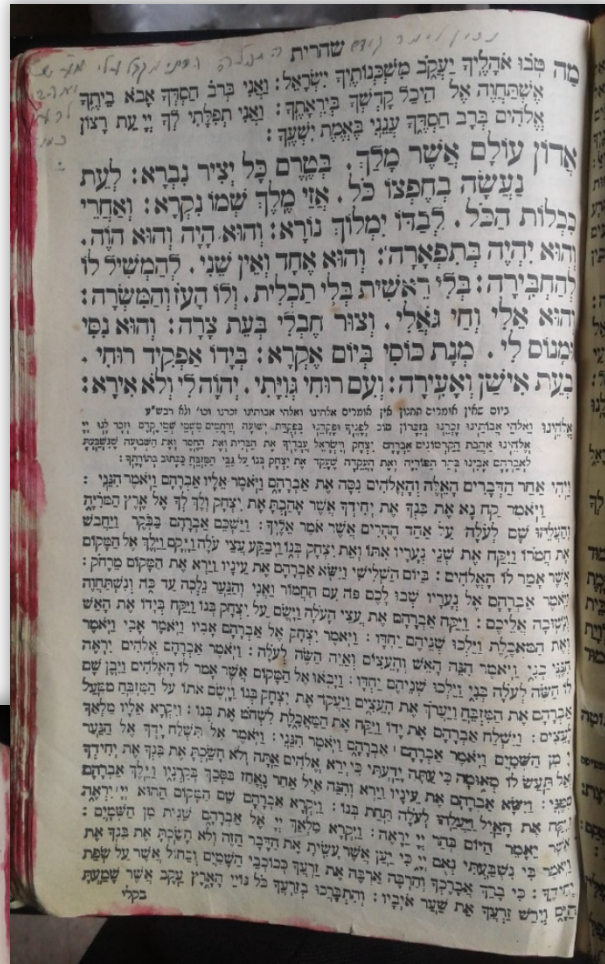 נכון לומר קודם התפלה הריני מקבל עלי מ״ע של
ואהבת
לרעך
כמוך
שחרית
מַה טֹּבוּ אֹהָלֶיךָ יַעֲקֹב מִשְׁכְּנוֹתֶיךָ יִשְׂרָאֵל: וַאֲנִי בְּרֹב חַסְדְּךָ אָבֹא בֵיתֶךָ
אֶשְׁתַּחֲוֶה אֶל הֵיכַל קָדְשְׁךָ בְּיִרְאָתֶךָ: וַאֲנִי תְפִלָּתִי לְךָ יְיָ עֵת רָצוֹן
אֱלֹהִים בְּרָב חַסְדֶּךָ עֲנֵנִי בֶּאֱמֶת יִשְׁעֶךָ:
אֲדוֹן עוֹלָם אֲשֶׁר מָלַךְ. בְּטֶרֶם כָּל יְצִיר נִבְרָא: לְעֵת
נַעֲשָׂה בְחֶפְצוֹ כֹּל. אֲזַי מֶלֶךְ שְׁמוֹ נִקְרָא: וְאַחֲרֵי
כִּכְלוֹת הַכֹּל. לְבַדּוֹ יִמְלוֹךְ נוֹרָא: וְהוּא הָיָה וְהוּא הֹוֶה.
וְהוּא יִהְיֶה בְּתִפְאָרָה: וְהוּא אֶחָד וְאֵין שֵׁנִי. לְהַמְשִׁיל לוֹ
לְהַחְבִּירָה: בְּלִי רֵאשִׁית בְּלִי תַכְלִית. וְלוֹ הָעֹז וְהַמִּשְׂרָה:
וְהוּא אֵלִי וְחַי גּוֹאֲלִי. וְצוּר חֶבְלִי בְּעֵת צָרָה: וְהוּא נִסִּי
וּמָנוֹס לִי. מְנָת כּוֹסִי בְּיוֹם אֶקְרָא: בְּיָדוֹ אַפְקִיד רוּחִי.
בְּעֵת אִישַׁן וְאָעִירָה: וְעִם רוּחִי גְּוִיָּתִי. יְהֹוָה לִי וְלֹא אִירָא:
ביום שאין אומרים תחנון אין אומרים אלהינו ואלהי אבותינו זכרנו וכו' ולא רבש"ע
אֱלֹהֵינוּ וֵאלֹהֵי אֲבוֹתֵינוּ זָכְרֵנוּ בְּזִכְרוֹן טוֹב לְפָנֶיךָ וּפָקְדֵנוּ בִּפְקֻדַּת יְשׁוּעָה וְרַחֲמִים מִשְּׁמֵי שְׁמֵי קֶדֶם וּזְכָר לָנוּ יְיָ
אֱלֹהֵינוּ אַהֲבַת הַקַּדְמוֹנִים אַבְרָהָם יִצְחָק וְיִשְׂרָאֵל עֲבָדֶיךָ אֶת הַבְּרִית וְאֶת הַחֶסֶד וְאֶת הַשְּׁבוּעָה שֶׁנִּשְׁבַּעְתָּ
לְאַבְרָהָם אָבִינוּ בְּהַר הַמּוֹרִיָּה וְאֶת הָעֲקֵדָה שֶׁעָקַד אֶת יִצְחָק בְּנוֹ עַל גַּבֵּי הַמִּזְבֵּחַ כַּכָּתוּב בְּתוֹרָתֶךָ:
וַיְהִי אַחַר הַדְּבָרִים הָאֵלֶּה וְהָאֱלֹהִים נִסָּה אֶת אַבְרָהָם וַיֹּאמֶר אֵלָיו אַבְרָהָם וַיֹּאמֶר הִנֵּנִי:
וַיֹּאמֶר קַח נָא אֶת בִּנְךָ אֶת יְחִידְךָ אֲשֶׁר אָהַבְתָּ אֶת יִצְחָק וְלֶךְ לְךָ אֶל אֶרֶץ הַמֹּרִיָּה
וְהַעֲלֵהוּ שָׁם לְעֹלָה עַל אַחַד הֶהָרִים אֲשֶׁר אֹמַר אֵלֶיךָ: וַיַּשְׁכֵּם אַבְרָהָם בַּבֹּקֶר וַיַּחֲבֹשׁ
אֶת חֲמֹרוֹ וַיִּקַּח אֶת שְׁנֵי נְעָרָיו אִתּוֹ וְאֵת יִצְחָק בְּנוֹ וַיְבַקַּע עֲצֵי עֹלָה וַיָּקָם וַיֵּלֶךְ אֶל הַמָּקוֹם
אֲשֶׁר אָמַר לוֹ הָאֱלֹהִים: בַּיּוֹם הַשְּׁלִישִׁי וַיִּשָּׂא אַבְרָהָם אֶת עֵינָיו וַיַּרְא אֶת הַמָּקוֹם מֵרָחֹק:
וַיֹּאמֶר אַבְרָהָם אֶל נְעָרָיו שְׁבוּ לָכֶם פֹּה עִם הַחֲמוֹר וַאֲנִי וְהַנַּעַר נֵלְכָה עַד כֹּה וְנִשְׁתַּחֲוֶה
וְנָשׁוּבָה אֲלֵיכֶם: וַיִּקַּח אַבְרָהָם אֶת עֲצֵי הָעֹלָה וַיָּשֶׂם עַל יִצְחָק בְּנוֹ וַיִּקַּח בְּיָדוֹ אֶת הָאֵשׁ
וְאֶת הַמַּאֲכֶלֶת וַיֵּלְכוּ שְׁנֵיהֶם יַחְדָּו: וַיֹּאמֶר יִצְחָק אֶל אַבְרָהָם אָבִיו וַיֹּאמֶר אָבִי וַיֹּאמֶר
הִנֶּנִּי בְנִי וַיֹּאמֶר הִנֵּה הָאֵשׁ וְהָעֵצִים וְאַיֵּה הַשֶּׂה לְעֹלָה: וַיֹּאמֶר אַבְרָהָם אֱלֹהִים יִרְאֶה
לּוֹ הַשֶּׂה לְעֹלָה בְּנִי וַיֵּלְכוּ שְׁנֵיהֶם יַחְדָּו: וַיָּבֹאוּ אֶל הַמָּקוֹם אֲשֶׁר אָמַר לוֹ הָאֱלֹהִים וַיִּבֶן שָׁם
אַבְרָהָם אֶת הַמִּזְבֵּחַ וַיַּעֲרֹךְ אֶת הָעֵצִים וַיַּעֲקֹד אֶת יִצְחָק בְּנוֹ וַיָּשֶׂם אֹתוֹ עַל הַמִּזְבֵּחַ מִמַּעַל
לָעֵצִים: וַיִּשְׁלַח אַבְרָהָם אֶת יָדוֹ וַיִּקַּח אֶת הַמַּאֲכֶלֶת לִשְׁחֹט אֶת בְּנוֹ: וַיִּקְרָא אֵלָיו מַלְאַךְ
יְיָ מִן הַשָּׁמַיִם וַיֹּאמֶר אַבְרָהָם אַבְרָהָם וַיֹּאמֶר הִנֵּנִי: וַיֹּאמֶר אַל תִּשְׁלַח יָדְךָ אֶל הַנַּעַר
וְאַל תַּעַשׂ לוֹ מְאוּמָה כִּי עַתָּה יָדַעְתִּי כִּי יְרֵא אֱלֹהִים אַתָּה וְלֹא חָשַׂכְתָּ אֶת בִּנְךָ אֶת יְחִידְךָ
מִמֶּנִּי: וַיִּשָּׂא אַבְרָהָם אֶת עֵינָיו וַיַּרְא וְהִנֵּה אַיִל אַחַר נֶאֱחַז בַּסְּבַךְ בְּקַרְנָיו וַיֵּלֶךְ אַבְרָהָם
וַיִּקַּח אֶת הָאַיִל וַיַּעֲלֵהוּ לְעֹלָה תַּחַת בְּנוֹ: וַיִּקְרָא אַבְרָהָם שֵׁם הַמָּקוֹם הַהוּא יְיָ יִרְאֶה
אֲשֶׁר יֵאָמֵר הַיּוֹם בְּהַר יְיָ יֵרָאֶה: וַיִּקְרָא מַלְאַךְ יְיָ אֶל אַבְרָהָם שֵׁנִית מִן הַשָּׁמָיִם:
וַיֹּאמֶר בִּי נִשְׁבַּעְתִּי נְאֻם יְיָ כִּי יַעַן אֲשֶׁר עָשִׂיתָ אֶת הַדָּבָר הַזֶּה וְלֹא חָשַׂכְתָּ אֶת בִּנְךָ אֶת
יְחִידֶךָ: כִּי בָרֵךְ אֲבָרֶכְךָ וְהַרְבָּה אַרְבֶּה אֶת זַרְעֲךָ כְּכוֹכְבֵי הַשָּׁמַיִם וְכַחוֹל אֲשֶׁר עַל שְׂפַת
הַיָּם וְיִרַשׁ זַרְעֲךָ אֵת שַׁעַר אֹיְבָיו: וְהִתְבָּרְכוּ בְזַרְעֲךָ כֹּל גּוֹיֵי הָאָרֶץ עֵקֶב אֲשֶׁר שָׁמַעְתָּ
בקלי